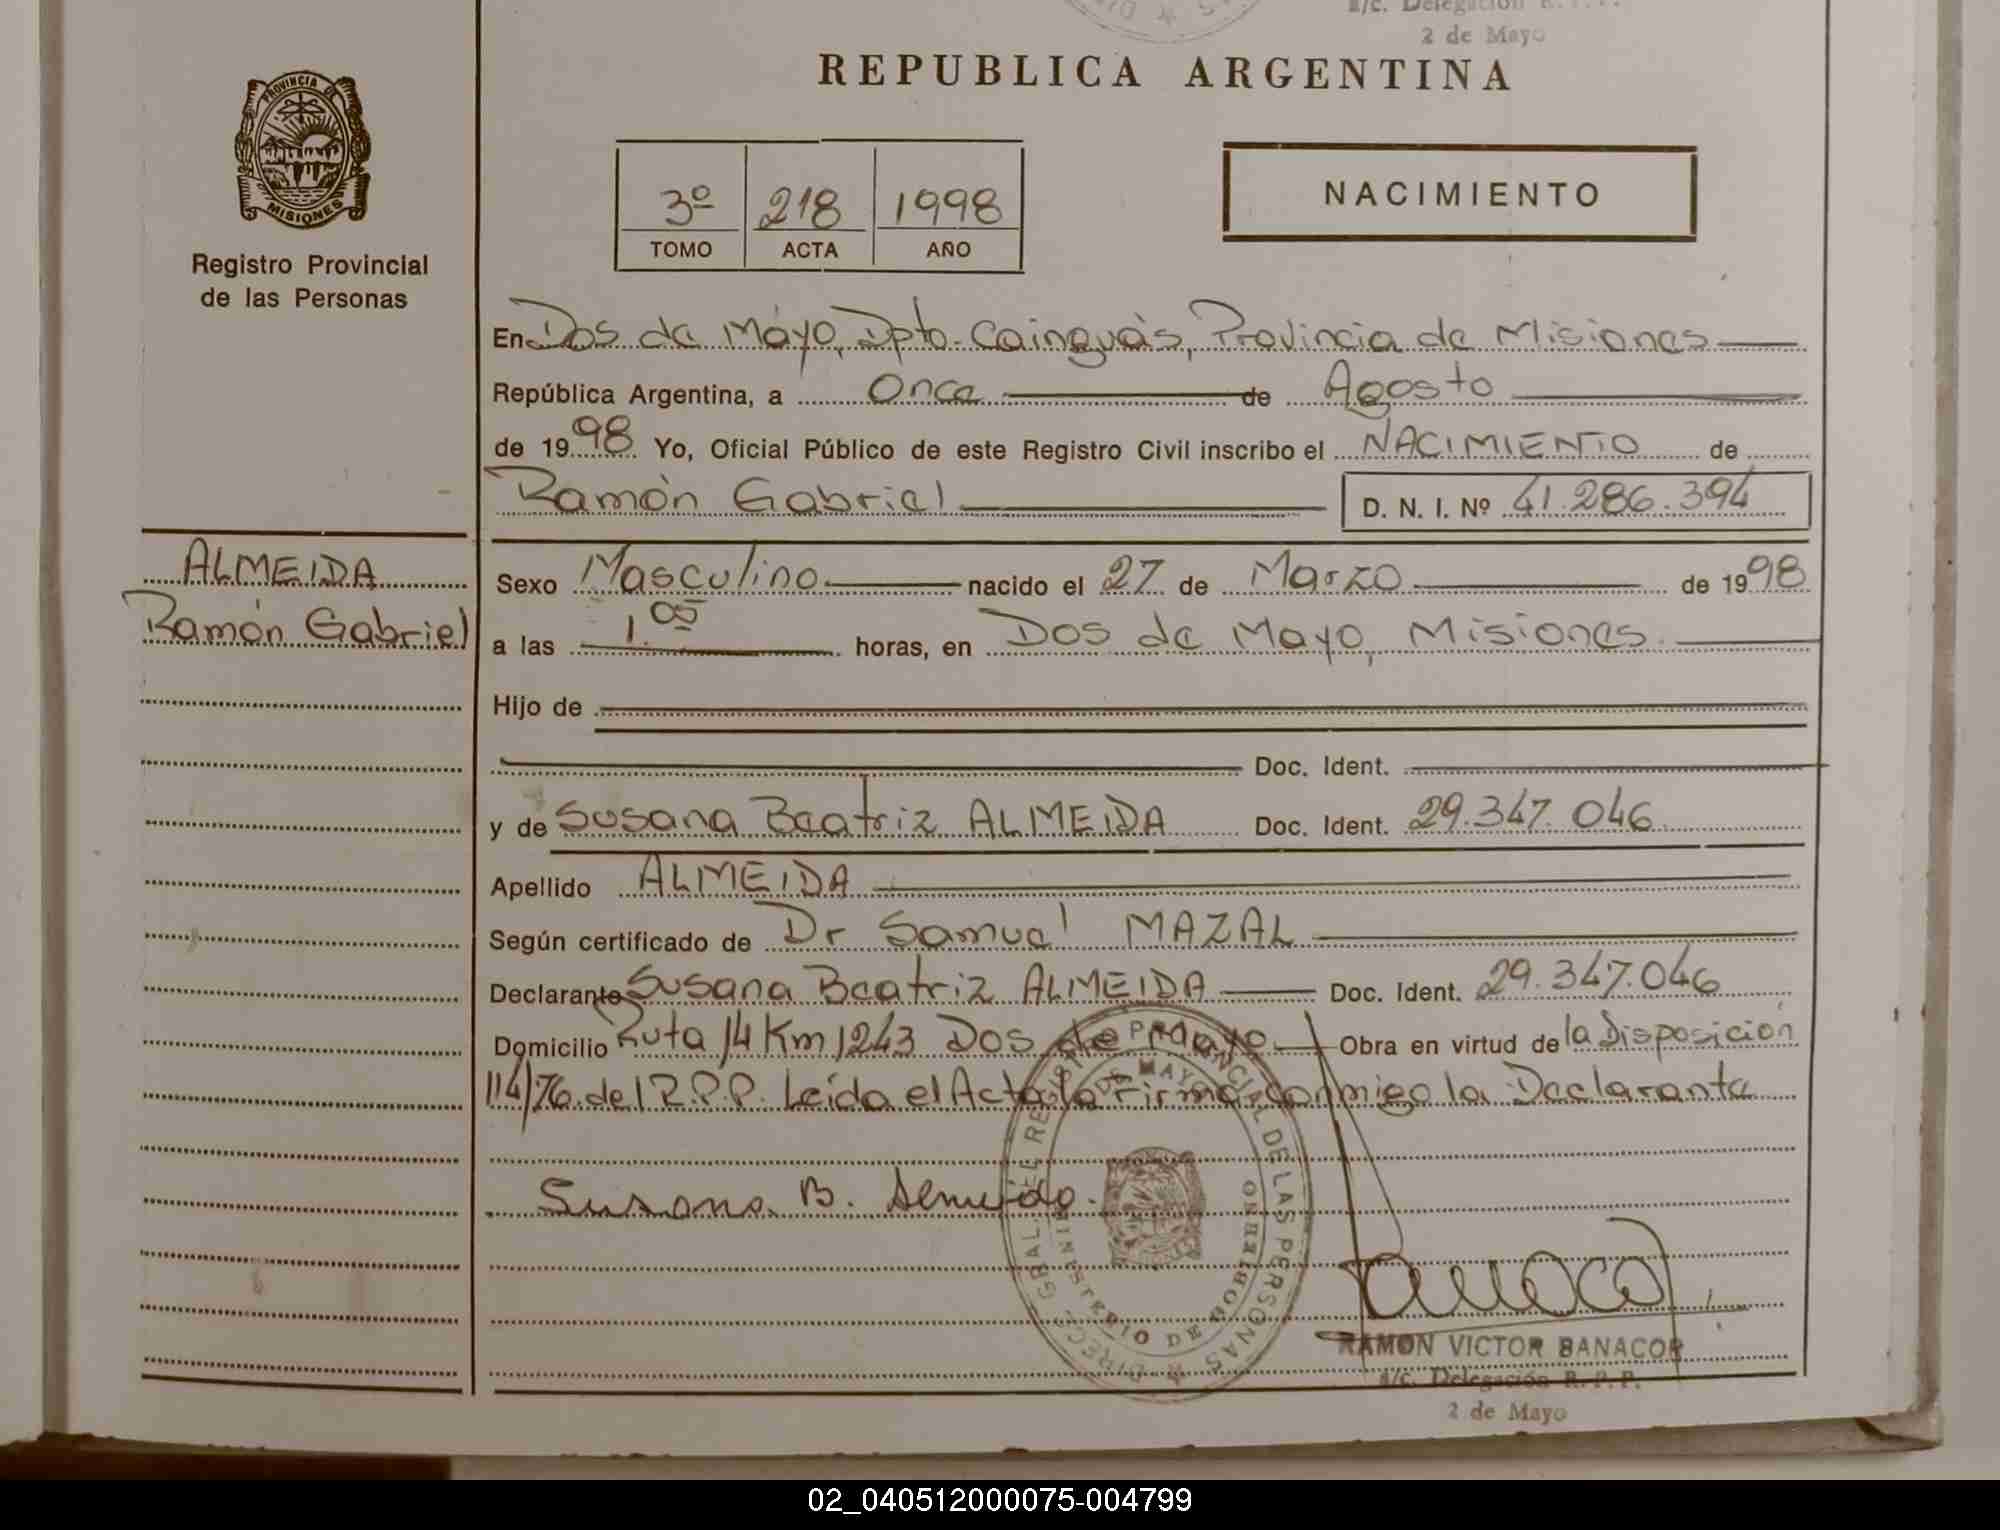 a/c. Delegación R.P.P.
2 de Mayo
REPUBLICA ARGENTINA
PROVINCIA DE
MISIONES
Registro Provincial
de las Personas
3º 218 1998
TOMO ACTA AÑO
NACIMIENTO
En Dos de Mayo, Dpto. Cainguás, Provincia de Misiones
República Argentina, a Once de Agosto
de 1998 Yo, Oficial Público de este Registro Civil inscribo el NACIMIENTO de
Ramón Gabriel D. N. I. Nº 41.286.394
ALMEIDA
Ramón Gabriel
Sexo Masculino nacido el 27 de Marzo de 1998
a las 1.05 horas, en Dos de Mayo, Misiones.
Hijo de
Doc. Ident.
y de Susana Beatriz ALMEIDA Doc. Ident. 29.347.046
Apellido ALMEIDA
Según certificado de Dr Samuel MAZAL
Declarante Susana Beatriz ALMEIDA Doc. Ident. 29.347.046
Domicilio Ruta 14 Km 1243 Dos de Mayo Obra en virtud de la Disposición
114/76 del R.P.P. Leída el Acta la Firma conmigo la Declarante
Susana B. Almeida.
DIRECC. GRAL. DEL REGISTRO PROVINCIAL DE LAS PERSONAS
DOS DE MAYO
MINISTERIO DE GOBIERNO
RAMON VICTOR BANACOR
a/c. Delegación R.P.P.
2 de Mayo
02_040512000075-004799